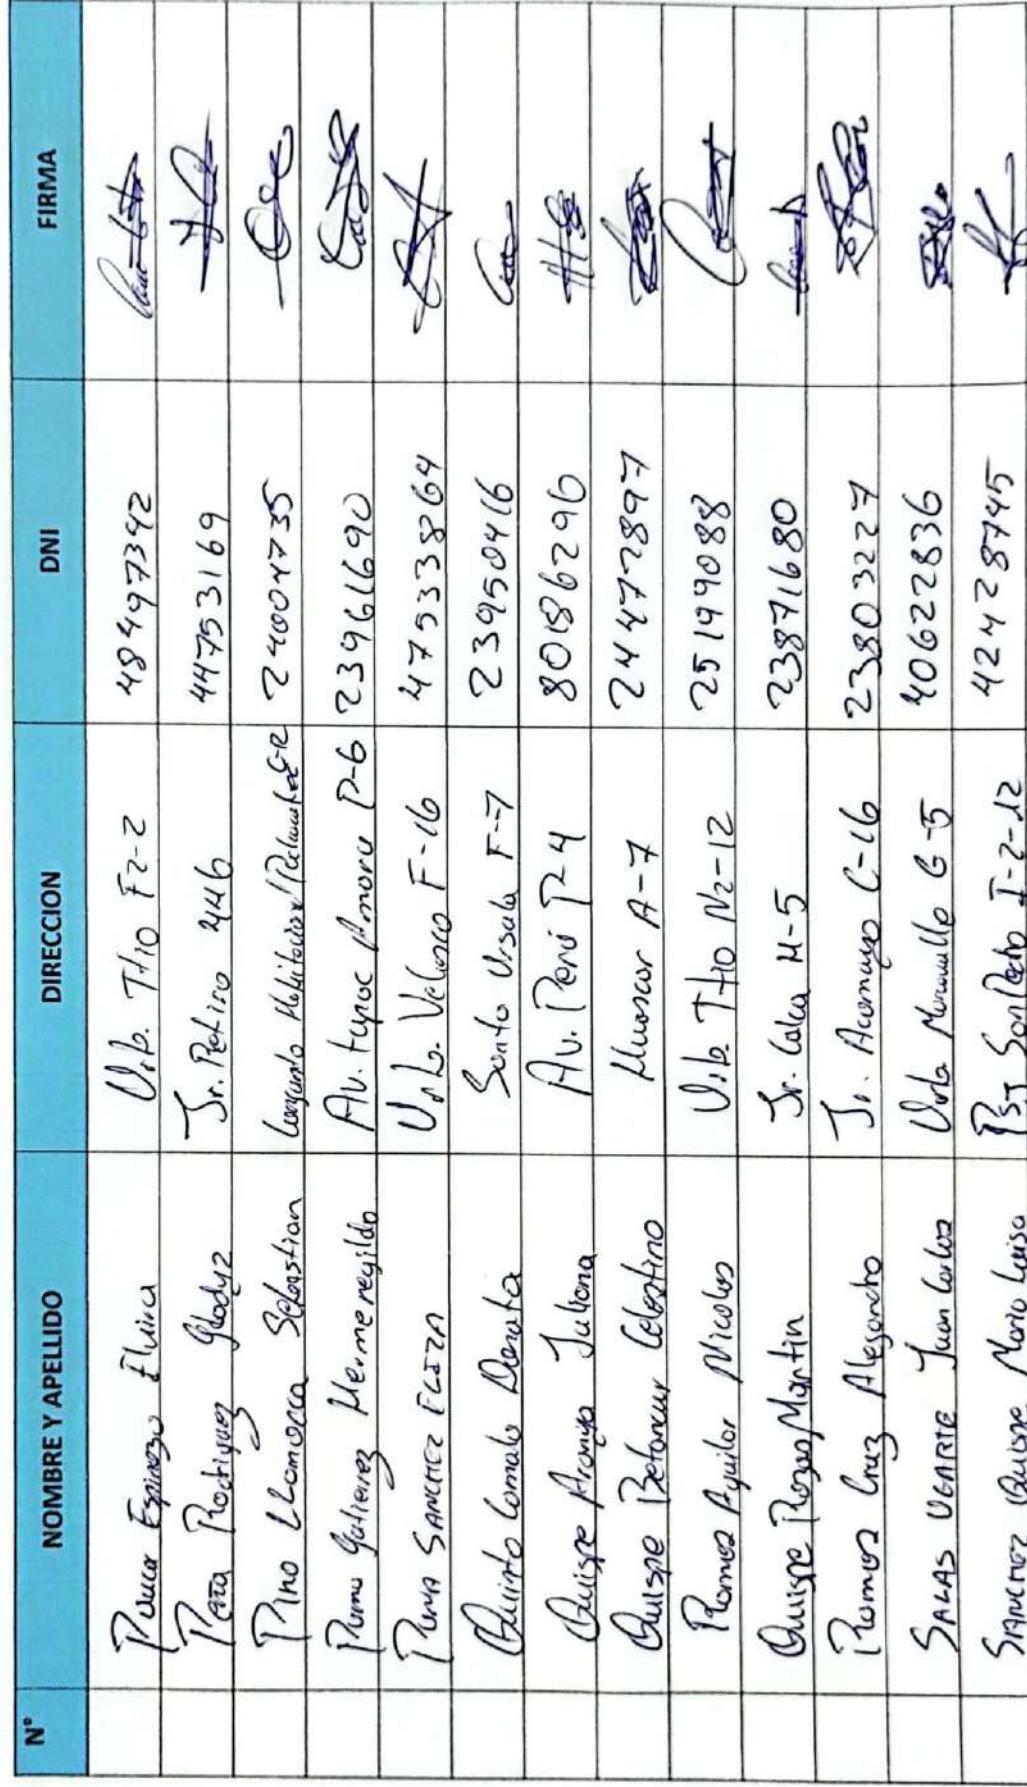 N° NOMBRE Y APELLIDO DIRECCION DNI FIRMA
Espinoza Elvira Urb. Ttio Fz-2 48497342
Peña Rodriguez Gladyz Jr. Retiro 446 44753169
Pino Llamocca Sebastian 24004735
Puma Gutierrez Hermenegildo Av. Tupac Amaru P-6 23961690
Puma SANCHEZ ELIZA Urb. Velasco F-16 47533864
Quinto Donata Santa Ursula F-7 23950416
Quispe Juliana Av. Perú P-4 80186296
Quispe Betancur Celestino Huascar A-7 24472897
Ramos Aguilar Nicolas Urb. Ttio Nz-12 25199088
Quispe Rozas Martin Jr. Calca H-5 23871680
Ramos Cruz Alejandro Jr. Acomayo C-16 23803227
SALAS UGARTE Juan Carlos Urb. G-5 40622836
SANCHEZ Quispe Maria Luisa PSJ San Pedro I-2-12 42428745